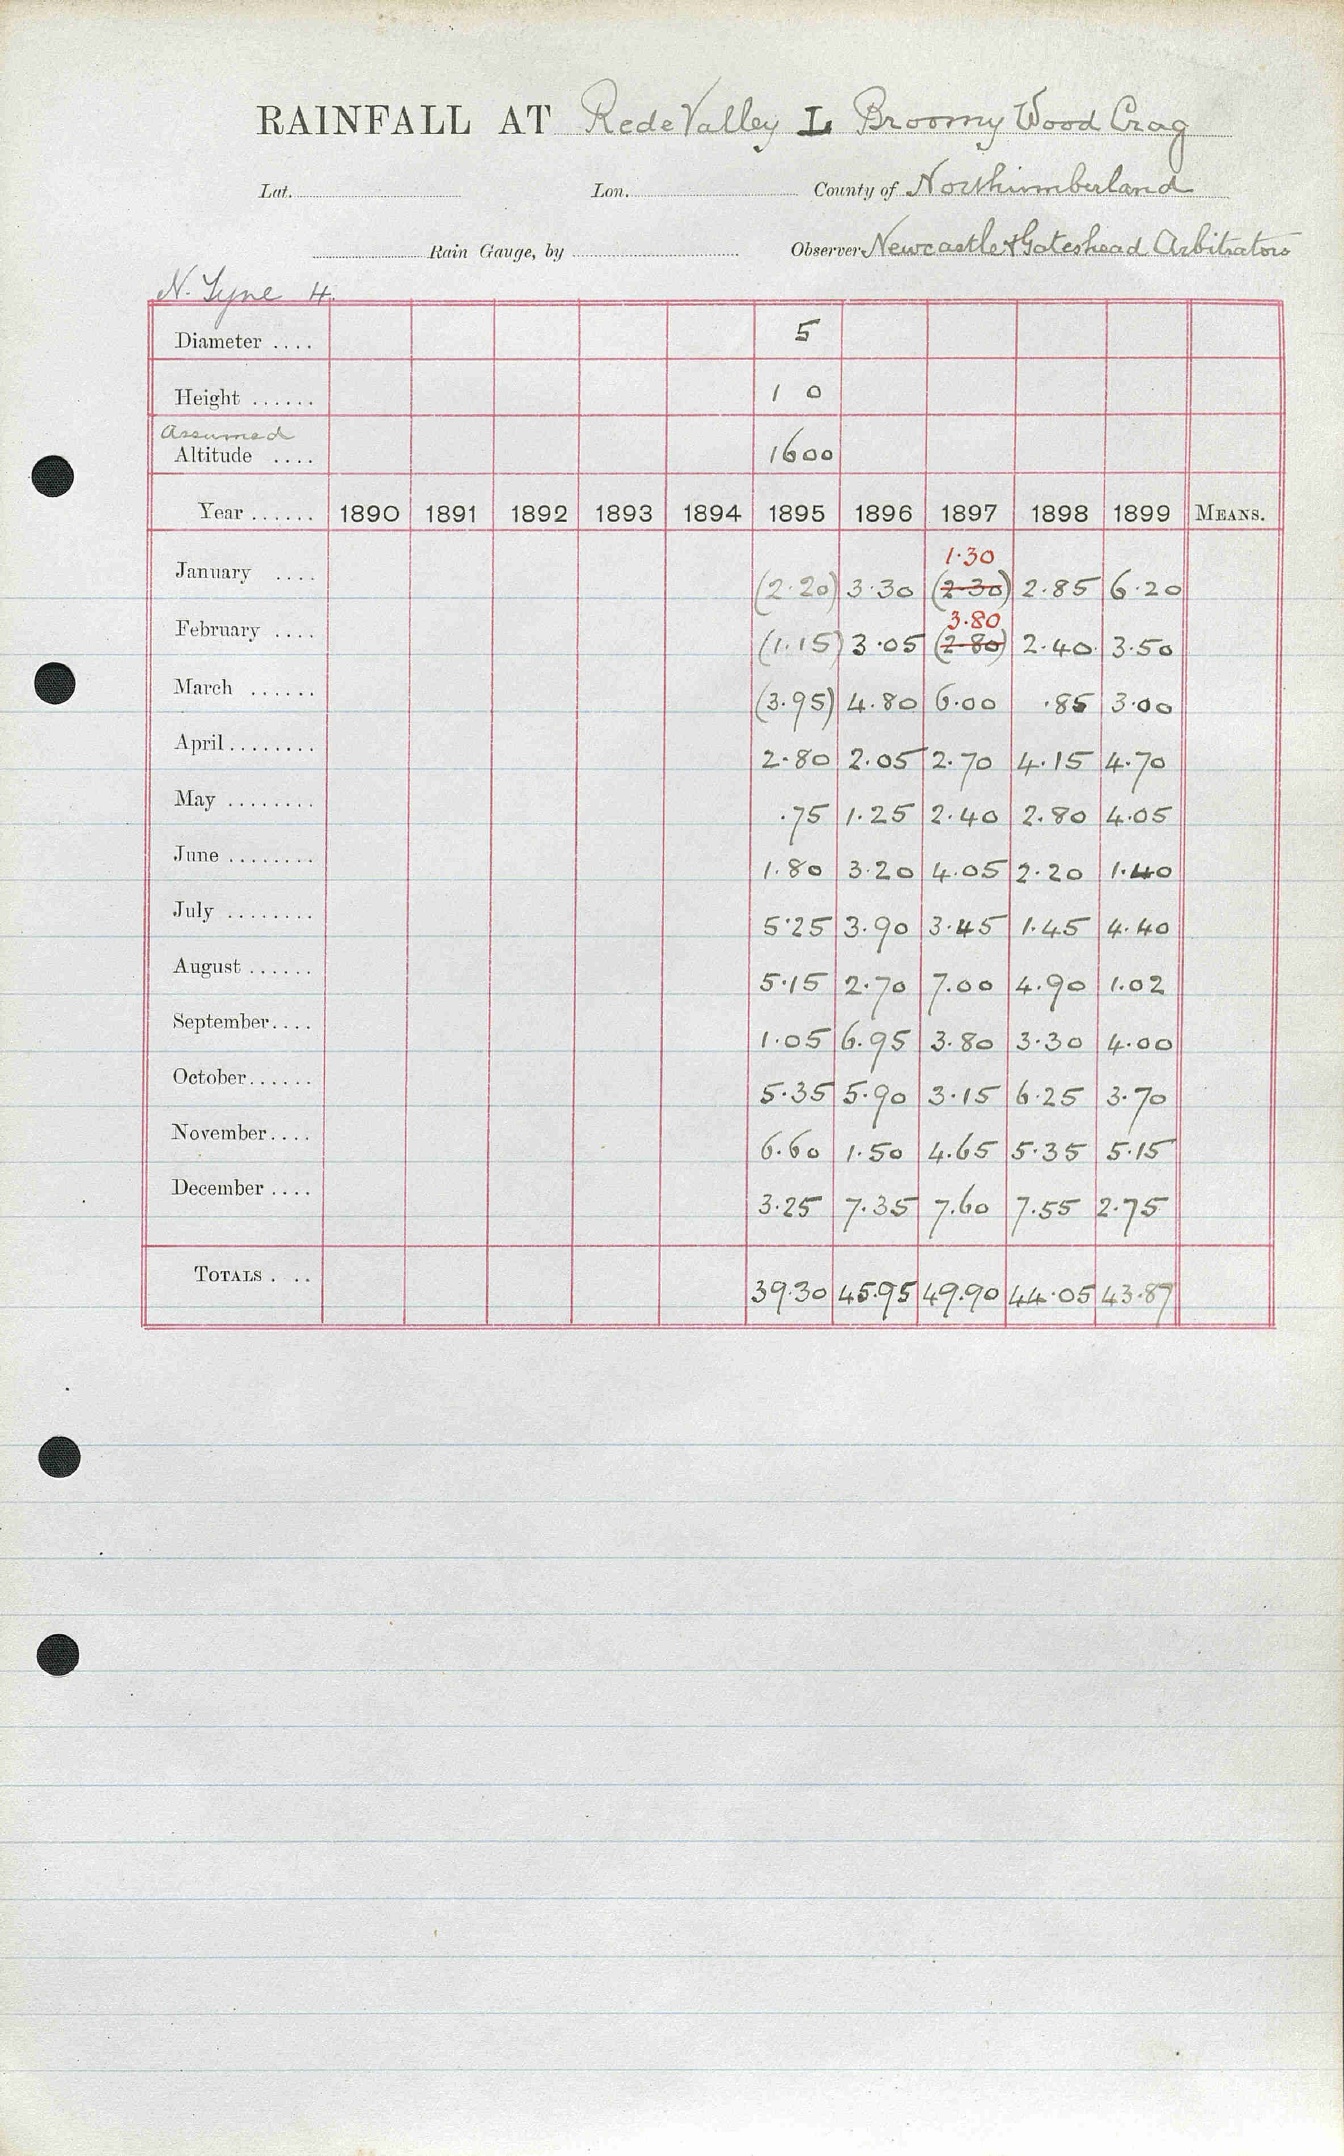 RAINFALL AT Rede Valley L Broomy Wood Crag
Lat. Lon. County of Northumberland
Rain Gauge, by Observer Newcastle & Gateshead Arbitrators
N. Tyne 4.
Diameter .... 5
Height ...... 1 0
Assumed
Altitude .... 1600
Year ...... 1890 1891 1892 1893 1894 1895 1896 1897 1898 1899 MEANS.
1.30
January .... (2.20) 3.30 (2.30) 2.85 6.20
3.80
February .... (1.15) 3.05 (2.80) 2.40 3.50
March ...... (3.95) 4.80 6.00 .85 3.00
April ........ 2.80 2.05 2.70 4.15 4.70
May ........ .75 1.25 2.40 2.80 4.05
June ........ 1.80 3.20 4.05 2.20 1.40
July ........ 5.25 3.90 3.45 1.45 4.40
August ...... 5.15 2.70 7.00 4.90 1.02
September.... 1.05 6.95 3.80 3.30 4.00
October...... 5.35 5.90 3.15 6.25 3.70
November.... 6.60 1.50 4.65 5.35 5.15
December .... 3.25 7.35 7.60 7.55 2.75
TOTALS . .. 39.30 45.95 49.90 44.05 43.87